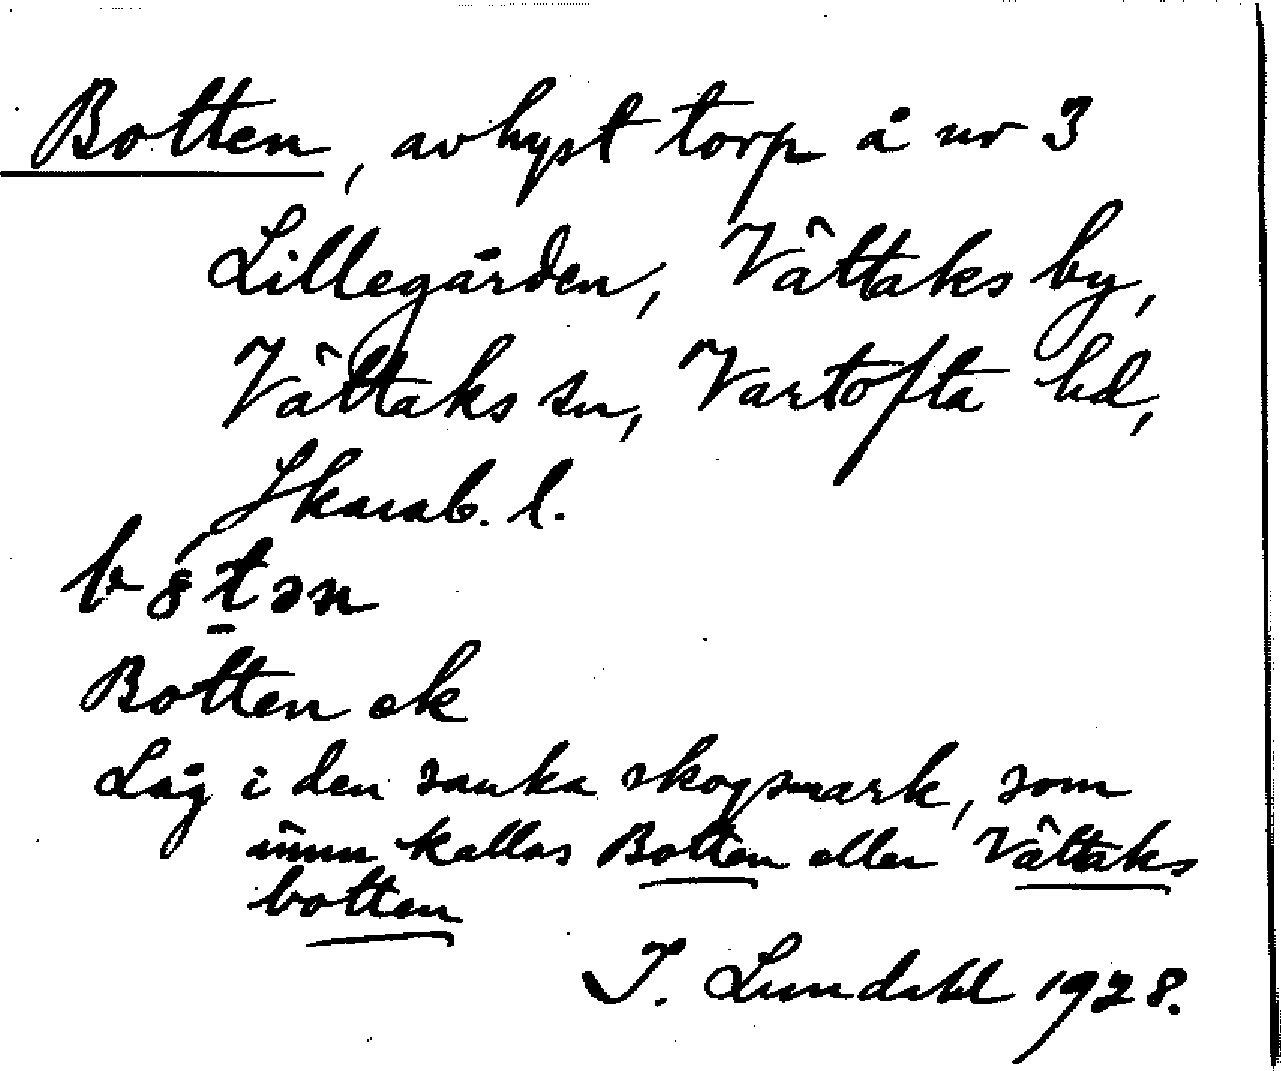 Botten, avhyst torp å nr 3
Lillegården, Vättaks by,
Vättaks sn, Vartofta hd,
Skarab. l.
Botten ek
Låg i den sanka skogsmark, som
ännu kallas Botten eller Vättaks
botten
I. Lundahl 1928.